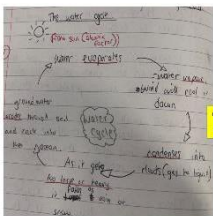 The water cycle
from sun (abiotic
factor)
water evaporates
water vapour
cool
down
condenses into
clouds (gas to liquid)
water
cycle
As it gets
too large or heavy
it
rain or
snow
ground water
through soil
and rock into
the ocean.